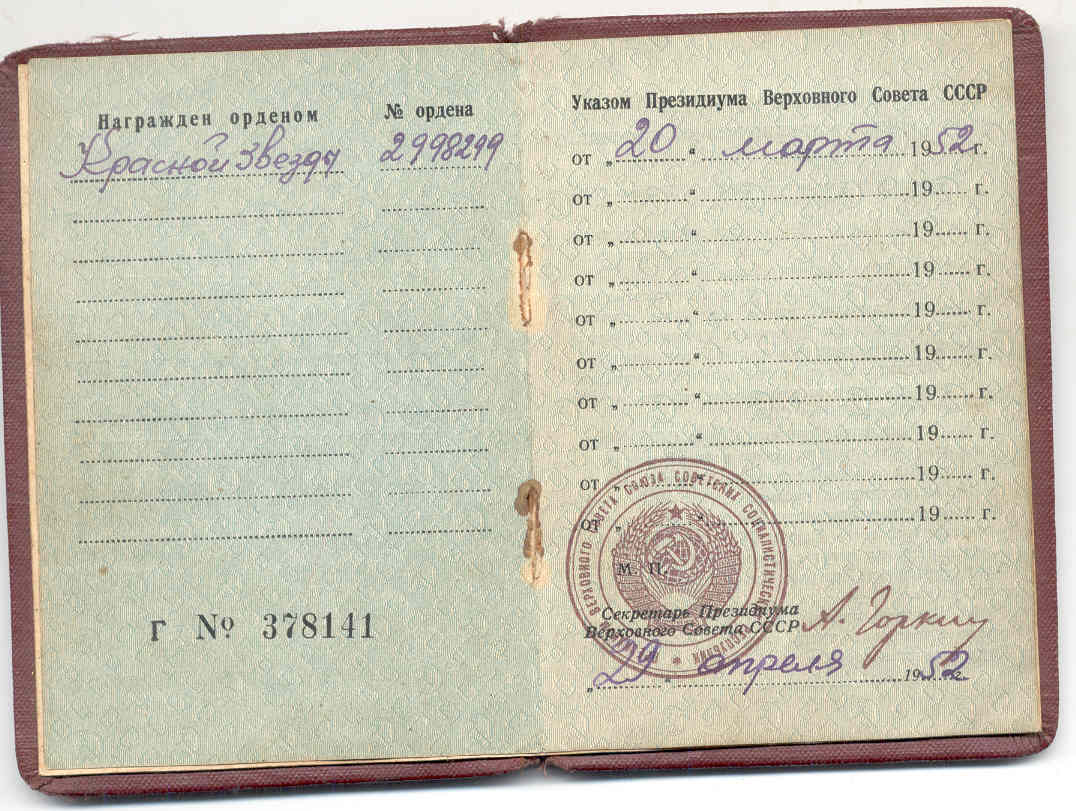 Награжден орденом
№ ордена
Красной Звезды
2998299
Г № 378141
Указом Президиума Верховного Совета СССР
от „ 20 “ марта 1952 г.
от „ “ 19 г.
от „ “ 19 г.
от „ “ 19 г.
от „ “ 19 г.
от „ “ 19 г.
от „ “ 19 г.
от „ “ 19 г.
от „ “ 19 г.
от „ “ 19 г.
ВЕРХОВНОГО СОВЕТА СОЮЗА СОВЕТСКИХ СОЦИАЛИСТИЧЕСКИХ РЕСПУБЛИК
М. П.
Секретарь Президиума
Верховного Совета СССР А. Горкин
„ 29 “ апреля 1952 г.